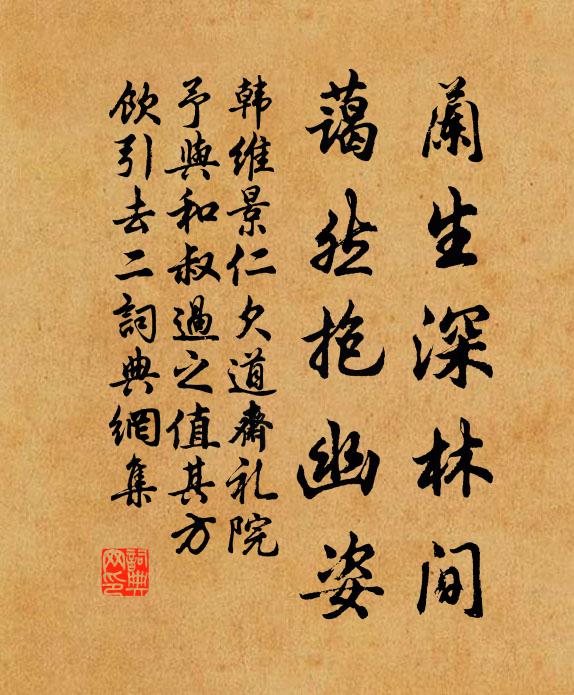 蘭生深林间
蔼然抱幽姿
韩维景仁久道斋礼院
予與和叔過之值其方
飲引去二詞典網集
詞典网印